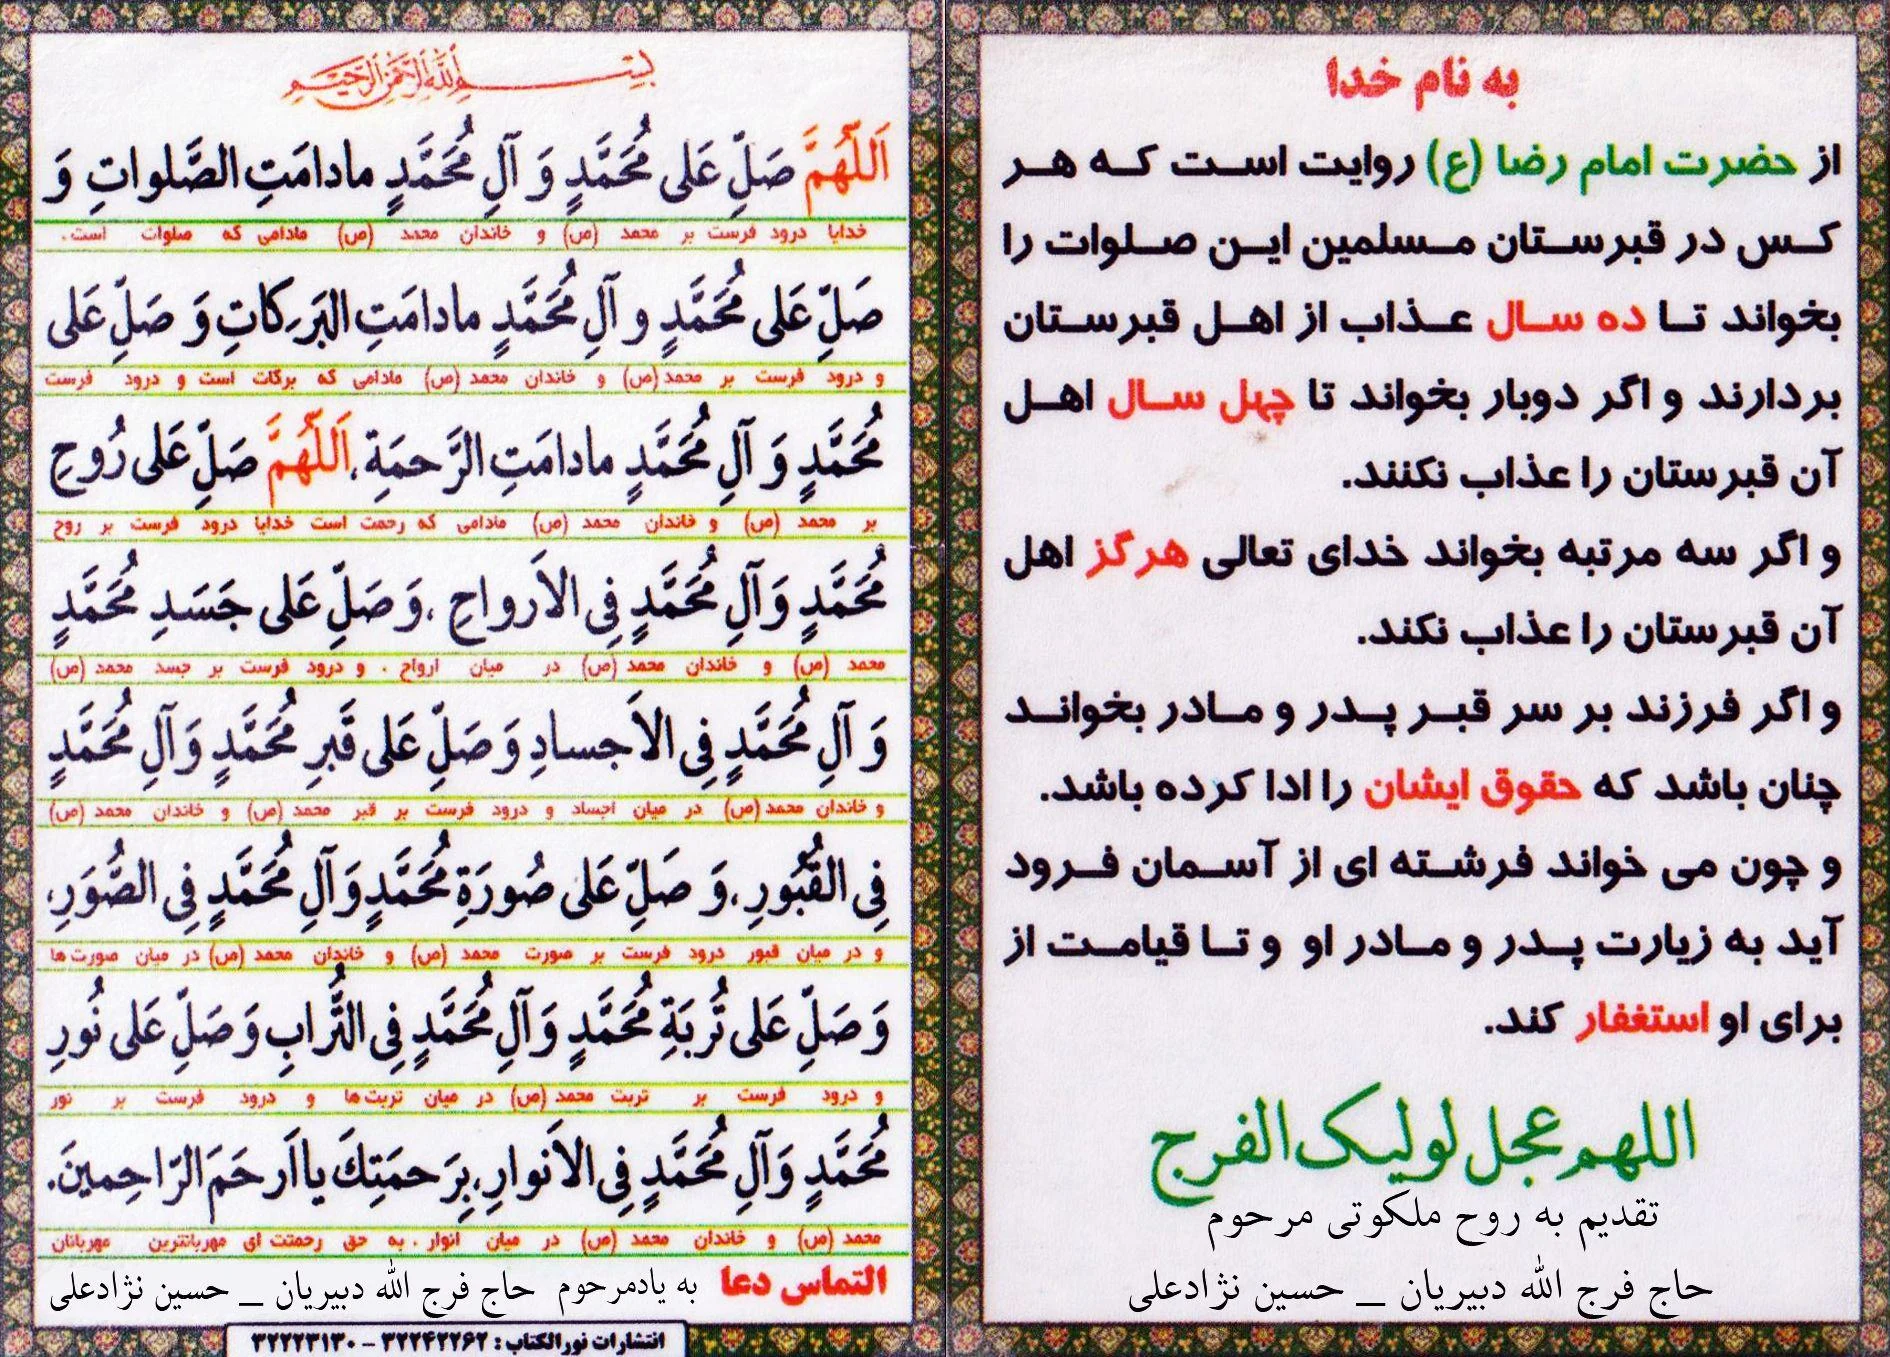 به نام خدا
از حضرت امام رضا (ع) روایت است که هر
کس در قبرستان مسلمین این صلوات را
بخواند تا ده سال عذاب از اهل قبرستان
بردارند و اگر دوبار بخواند تا چهل سال اهل
آن قبرستان را عذاب نکنند.
و اگر سه مرتبه بخواند خدای تعالی هرگز اهل
آن قبرستان را عذاب نکند.
و اگر فرزند بر سر قبر پدر و مادر بخواند
چنان باشد که حقوق ایشان را ادا کرده باشد.
و چون می خواند فرشته ای از آسمان فرود
آید به زیارت پدر و مادر او و تا قیامت از
برای او استغفار کند.
اللهم عجل لولیک الفرج
تقدیم به روح ملکوتی مرحوم
حاج فرج الله دبیریان _ حسین نژادعلی
بسم الله الرحمن الرحیم
اَللّهُمَّ صَلِّ عَلی مُحَمَّدٍ وَ آلِ مُحَمَّدٍ مادامَتِ الصَّلواتِ وَ
خدایا درود فرست بر محمد (ص) و خاندان محمد (ص) مادامی که صلوات است.
صَلِّ عَلی مُحَمَّدٍ و آلِ مُحَمَّدٍ مادامَتِ البَرَکاتِ وَ صَلِّ عَلی
و درود فرست بر محمد (ص) و خاندان محمد (ص) مادامی که برکات است و درود فرست
مُحَمَّدٍ وَ آلِ مُحَمَّدٍ مادامَتِ الرَّحمَةِ، اَللّهُمَّ صَلِّ عَلی رُوحِ
بر محمد (ص) و خاندان محمد (ص) مادامی که رحمت است خدایا درود فرست بر روح
مُحَمَّدٍ وَ آلِ مُحَمَّدٍ فِی الاَرواحِ ،وَ صَلِّ عَلی جَسَدِ مُحَمَّدٍ
محمد (ص) و خاندان محمد (ص) در میان ارواح . و درود فرست بر جسد محمد (ص)
وَ آلِ مُحَمَّدٍ فِی الاَجسادِ وَ صَلِّ عَلی قَبرِ مُحَمَّدٍ وَ آلِ مُحَمَّدٍ
و خاندان محمد (ص) در میان اجساد و درود فرست بر قبر محمد (ص) و خاندان محمد (ص)
فِی القُبُورِ ،وَ صَلِّ عَلی صُورَةِ مُحَمَّدٍ وَ آلِ مُحَمَّدٍ فِی الصُّوَرِ،
و در میان قبور درود فرست بر صورت محمد (ص) و خاندان محمد (ص) در میان صورت ها
وَ صَلِّ عَلی تُربَةِ مُحَمَّدٍ وَ آلِ مُحَمَّدٍ فِی التُّرابِ وَ صَلِّ عَلی نُورِ
و درود فرست بر تربت محمد (ص) در میان تربت ها و درود فرست بر نور
مُحَمَّدٍ وَ آلِ مُحَمَّدٍ فِی الاَنوارِ،بِرَحمَتِكَ یا اَرحَمَ الرّاحِمینَ.
محمد (ص) و خاندان محمد (ص) در میان انوار . به حق رحمتت ای مهربانترین مهربانان
التماس دعا به یادمرحوم حاج فرج الله دبیریان _ حسین نژادعلی
انتشارات نورالکتاب : ۳۲۲۴۲۲۶۲ - ۳۲۲۲۳۱۳۰